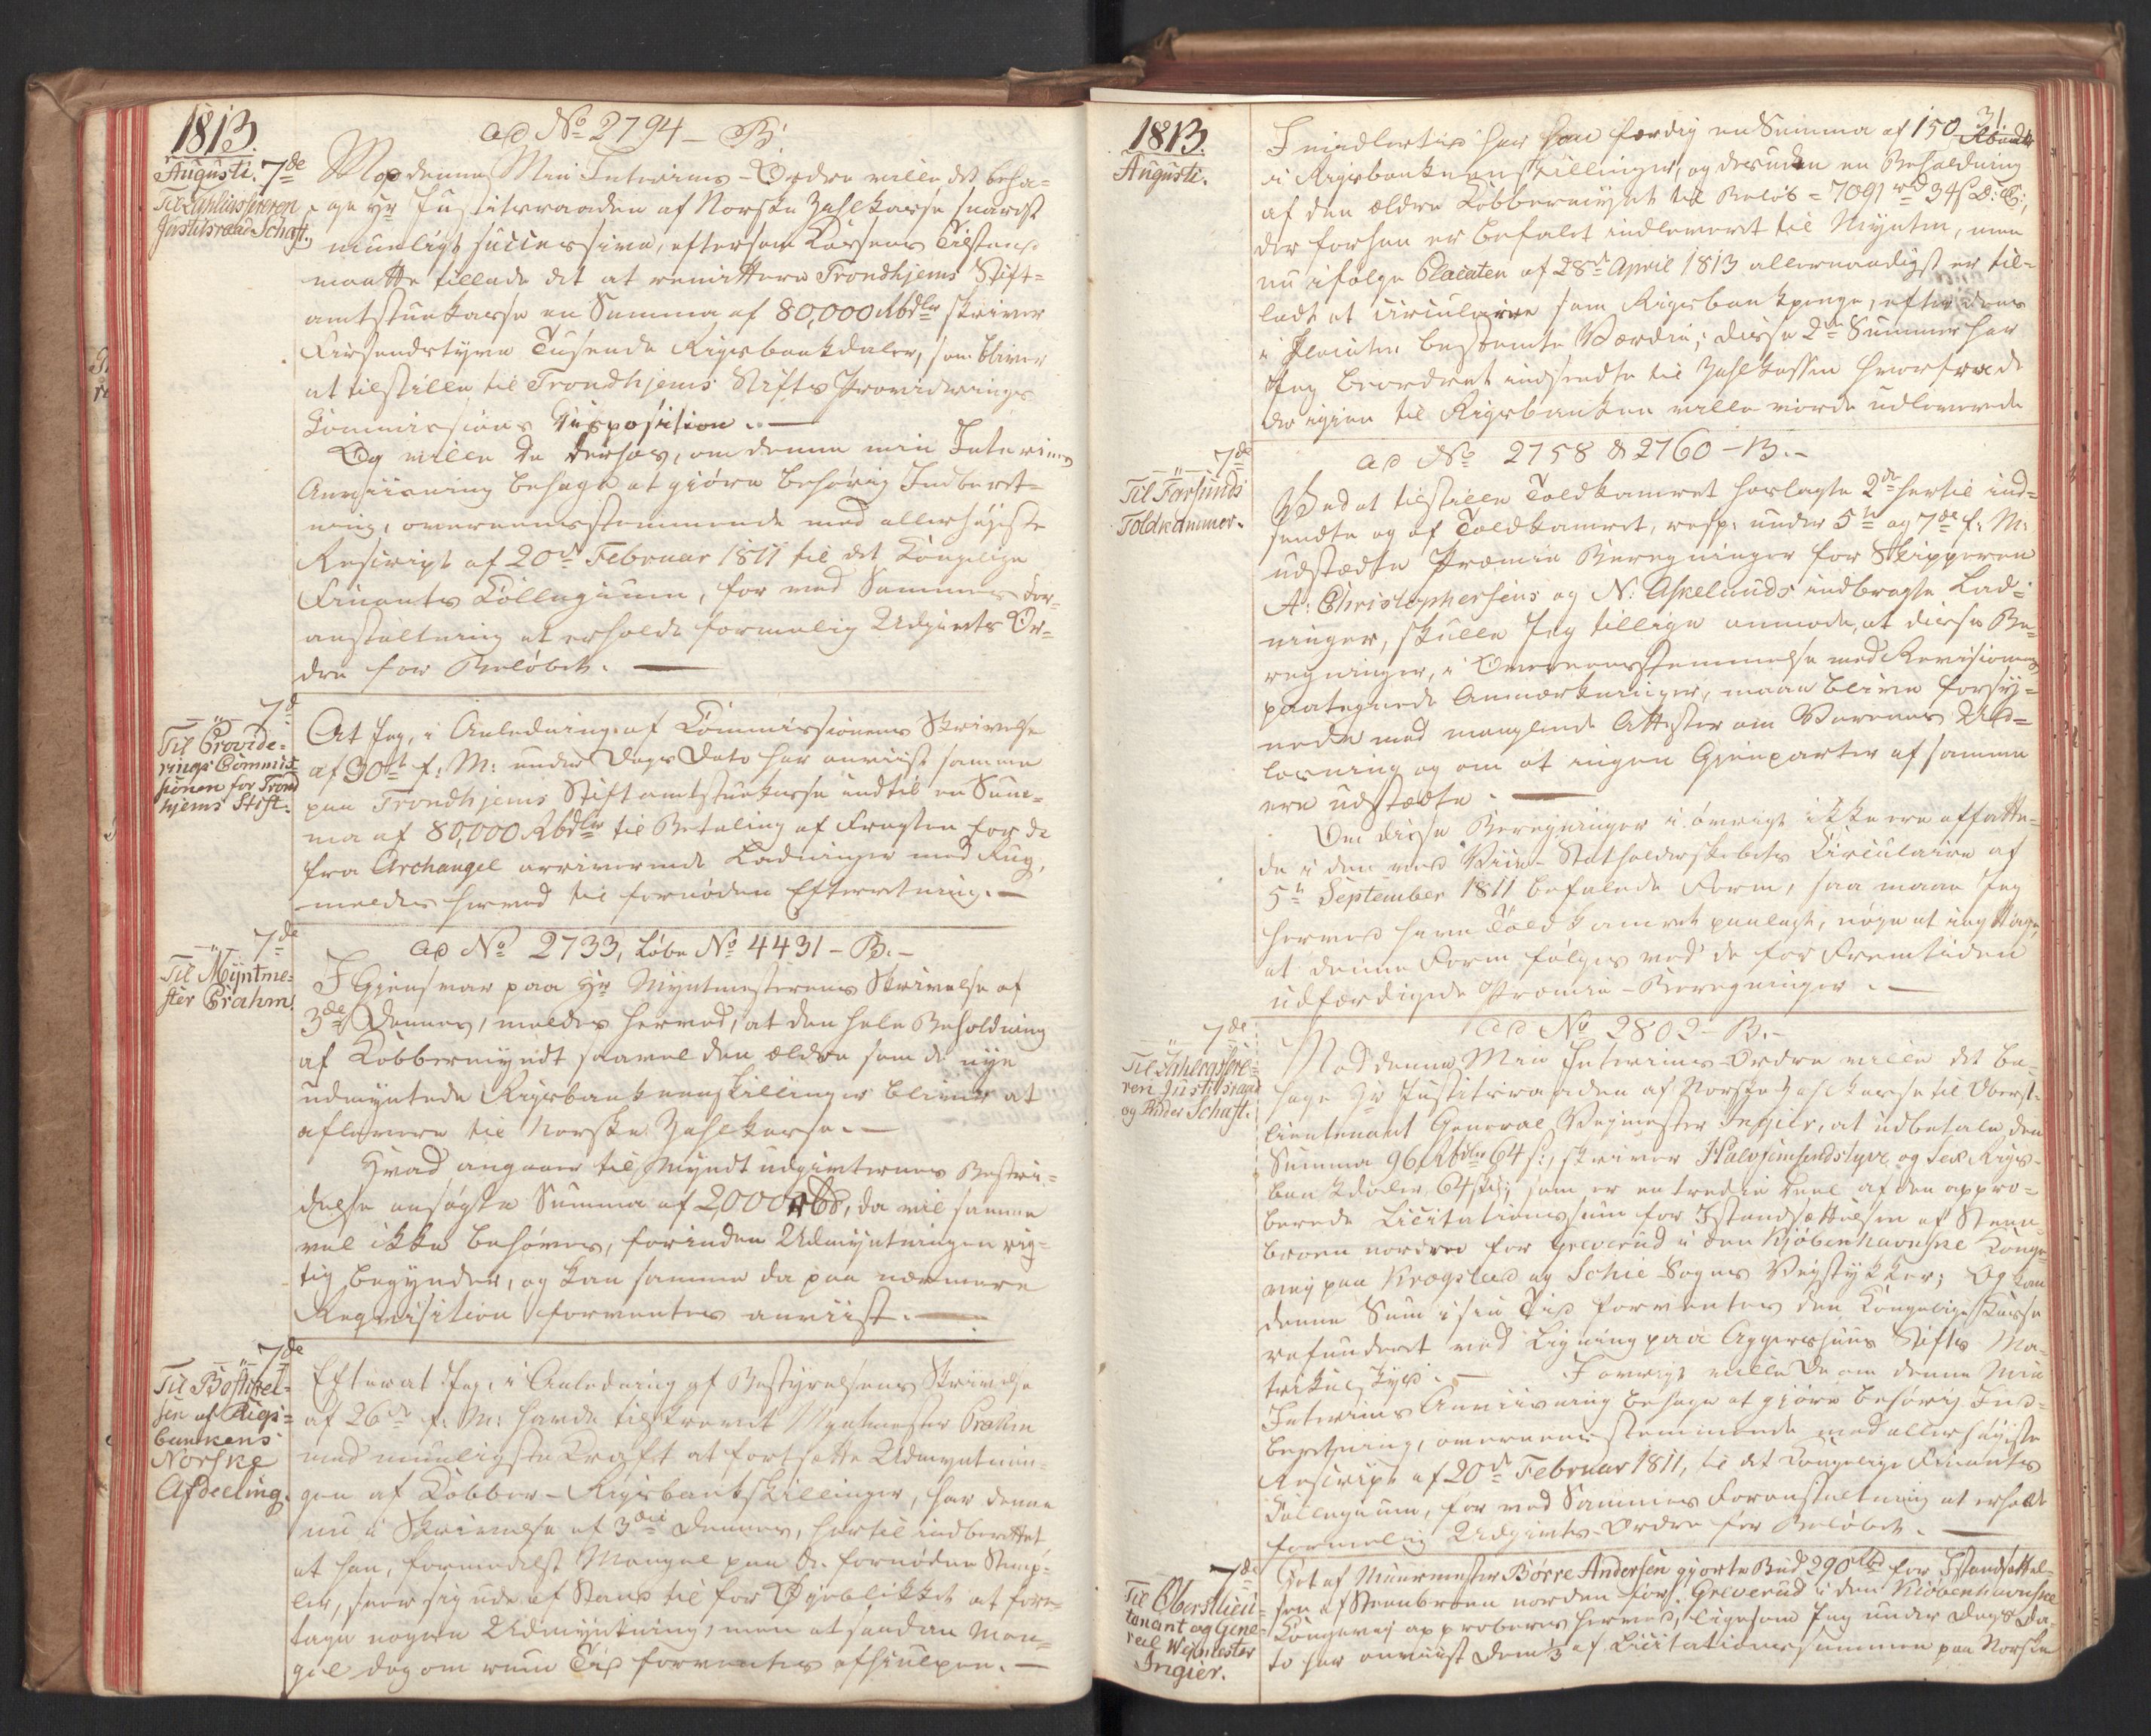 1813.
Augusti. 7de
Til Zahlkasserer
Justitsraad Schaft.
ad No 2794 - B.
Mod denne Min Interims-Ordre ville det beha-
ge Hr Justitsraaden af Norske Zahlkasse snarest
mueligt successive, eftersom Kassens Tilstand
maatte tillade det at remittere Trondhjems Stift-
amtstuekasse en Summa af 80,000 Rbdlr skriver
Firsendstyve Tusende Rigsbankdaler, som bliver
at tilstille til Trondhjems Stifts Provideerings
Commissions Disposition. —
Og ville De derhos, om denne min Interims
Anviisning behage at giøre behørig Indberet-
ning, overeensstemmende med allerhøjeste
Rescript af 20de Februar 1811 til det Kongelige
Finants Collegium, for ved Sammes For-
anstaltning at erholde formelig Udgivts Or-
dre for Beløbet. —
7de
Til Provide-
rings Commis-
sionen for Trond
hjems Stift.
At Jeg, i Anledning af Commissionens Skrivelse
af 30te f: M: under Dags Dato har anviist samme
paa Trondhjems Stiftamtstuekasse indtil en Sum-
ma af 80,000 Rbdlr til Betaling af Fragten for de
fra Archangel arriverende Ladninger med Rug,
meldes herved til fornøden Efterretning. —
7de
Til Myntme-
ster Prahm.
ad No 2733, Løbe No 4431 - B. -
I Giensvar paa Hr Myntmesterens Skrivelse af
3de Dennes, meldes herved, at den hele Beholdning
af Kobbermyndt saavel den ældre som de nye
udmyntede Rigsbanktegnskillinger bliver at
aflevere til Norske Zahlkasse. —
Hvad angaaer til Myndtudgivternes Bestri-
delse ansøgte Summa af 2,000 rbd, da vil samme
vel ikke behøves, forinden Udmyntningen rig-
tig begynder, og kan samme da paa nærmere
Reqvisition forventes anviist. —
7de
Til Bestyrel-
sen af Rigs-
bankens
Norske
Afdeeling.
Efterat Jeg, i Anledning af Bestyrelsens Skrivelse
af 26de f: M: havde tilskrevet Myntmester Prahm
med mueligste Kraft at fortsætte Udmyntnin-
gen af Kobber-Rigsbankskillinger, har denne
nu i Skrivelse af 3die Dennes, hertil indberettet
at han, formedelst Mangel paa de fornødne Stemp-
ler, seer sig ude af Stand til for Øyeblikket at fore-
tage nogen Udmyntning, men at saadan Man-
gel dog om nogen Tid forventes afhiulpen. —
1813.
Augusti.
31.
Imidlertid har han færdig en Summa af 150
i Rigsbanktegnskillinger, og desuden en Beholdning
af den ældre Kobbermynt til Beløb = 7091 rd 34 s D: C:,
der forhen er befalet indleveret til Mynten, men
nu ifølge Placaten af 28de April 1813 allernaadigst er til-
ladt at circulere som Rigsbankpenge, efter deres
i Placaten bestemte Værdie; disse 2de Summer har
Jeg beordret indsendte til Zahlkassen hvorfra de
da igien til Rigsbanken ville vorde udleverede
7de
Til Farsunds
Toldkammer.
ad No 2758 & 2760 - B. -
Ved at tilstille Toldkamret hoslagte 2de hertil ind-
sendte og af Toldkamret, resp: under 5te og 7de f: M:
udstædte Præmie Beregninger for Skipperen
A: Christophersens og N: Askelunds indbragte Lad-
ninger, skulle Jeg tillige anmode, at disse Be-
regninger, i Overeensstemmelse med Revisionens
paategnede Anmærkninger, maae blive forsy-
nede med manglende Attester om Varenes Ud-
losning og om at ingen Gienparter af samme
ere udstædte. —
Om disse Beregninger i øvrigt ikke ere affatte-
de i den ved Vice-Statholderskabets Circulaire af
5te September 1811 befalede Form, saa maae Jeg
herved have Toldkamret paalagt, nøye at iagttage,
at denne Form følges ved de for Fremtiden
udfærdigede Præmie-Beregninger. —
7de
Til Zahlkassere-
ren Justitsraad
og Ridder Schaft.
ad No 2802 - B. -
Mod denne Min Interims-Ordre ville det be-
hage Hr Justitsraaden af Norske Zahlkasse til Oberst-
lieutenant General Veymester Ingier, at udbetale den
Summa 96 Rbdlr 64 s:, skriver Halvfemsindstyve og Sex Rigs-
bankdaler 64 s:, som er en tredie Deel af den appro-
berede Licitationssum for Istandsættelsen af Steen-
broen norden for Greverud i den Kjøbenhavnske Konge-
vej paa Krogstad og Schie Sognes Vejstykker; Og kan
denne Sum i sin Tid forventes den Kongelige Kasse
refunderet ved Ligning paa Aggershuus Stifts Ma-
trikul Skyld. — I øvrigt ville De om denne Min
Interims Anviisning behage at giøre behørig Ind-
beretning, overeensstemmende med allerhøjeste
Rescript af 20de Februar 1811, til det Kongelige Finants
Collegium, for ved Sammes Foranstaltning at erholde
formelig Udgivts-Ordre for Beløbet. —
7de
Til Oberstlieu-
tenant og Gene-
ral Wejmester
Ingier.
Det af Muurmester Børre Andersen giorte Bud 290 rbd for Istandsættel-
sen af Steenbroen norden for Greverud i den Kiøbenhavnske
Kongevej approberes herved, ligesom Jeg under Dags Da-
to har anviist Dem ⅓ af Licitationssummen paa Norske